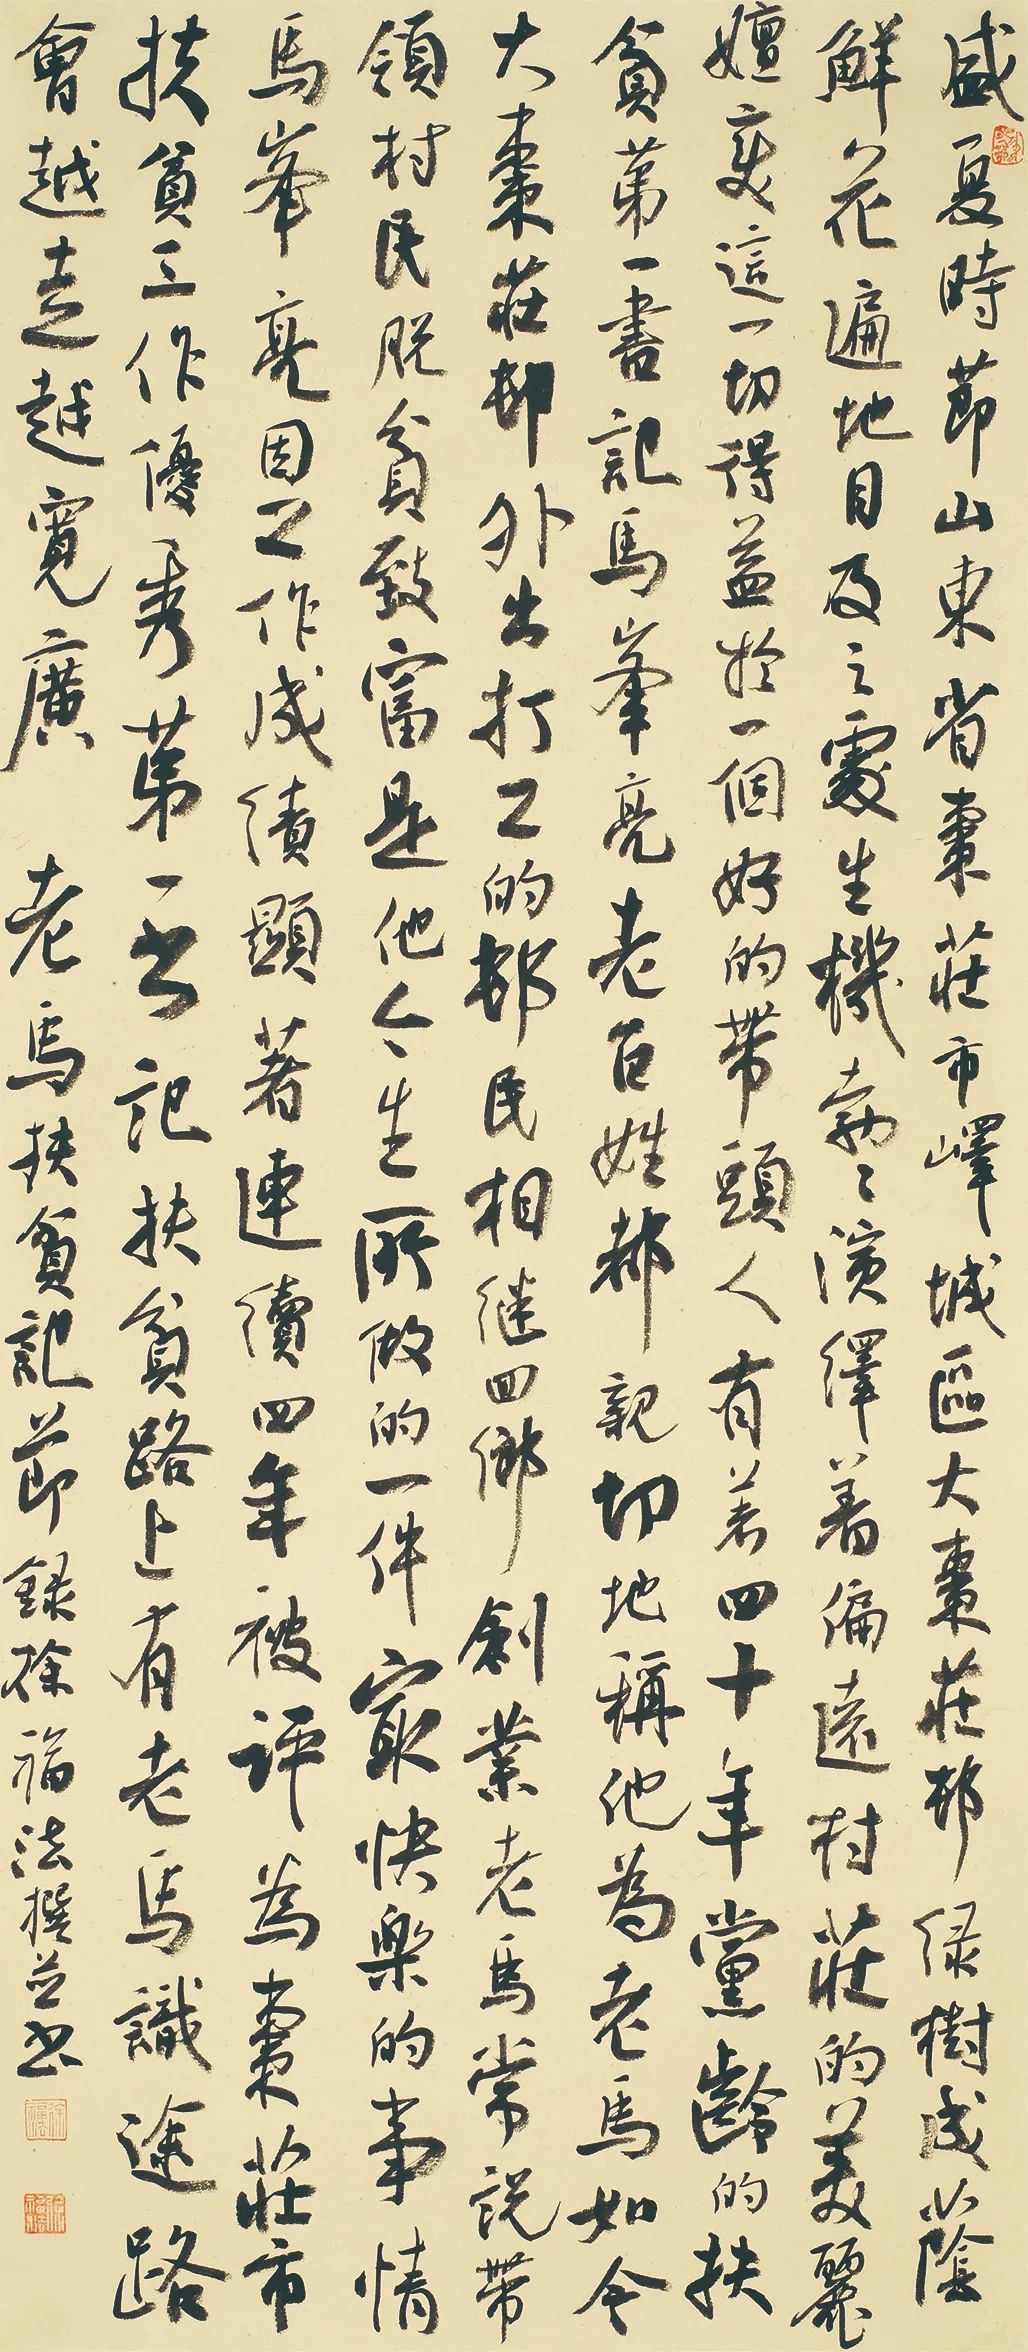 盛夏時節山東省棗莊市嶧城區大棗莊邨綠樹成蔭
鮮花遍地目及之處生機勃〻演繹着偏遠村莊的美麗
嬗變這一切得益於一個好的帶頭人有着四十年黨齡的扶
貧第一書記馬峯亮老百姓都親切地稱他為老馬如今
大棗莊邨外出打工的邨民相繼回鄉創業老馬常說帶
領村民脫貧致富是他今生所做的一件最快樂的事情
馬峯亮因工作成績顯著連續四年被評為棗莊市
扶貧工作優秀第一書記扶貧路上有老馬識途路
會越走越寬廣 老馬扶貧記節錄徐福法撰並書